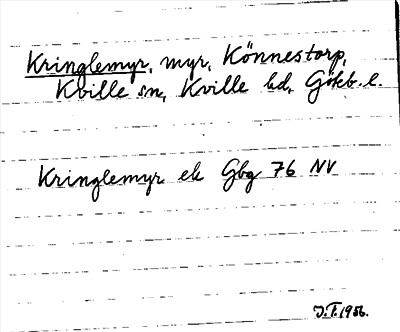 Kringlemyr, myr, Könnestorp,
Kville sn, Kville hd, Göteb. l.
Kringlemyr ek Gbg 76 NV
J.F. 1956.